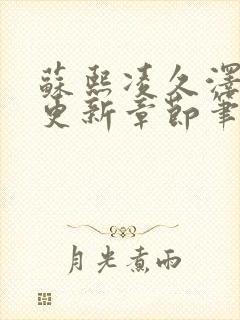 蘇熙凌久澤
更新章節筆
月光煮雨